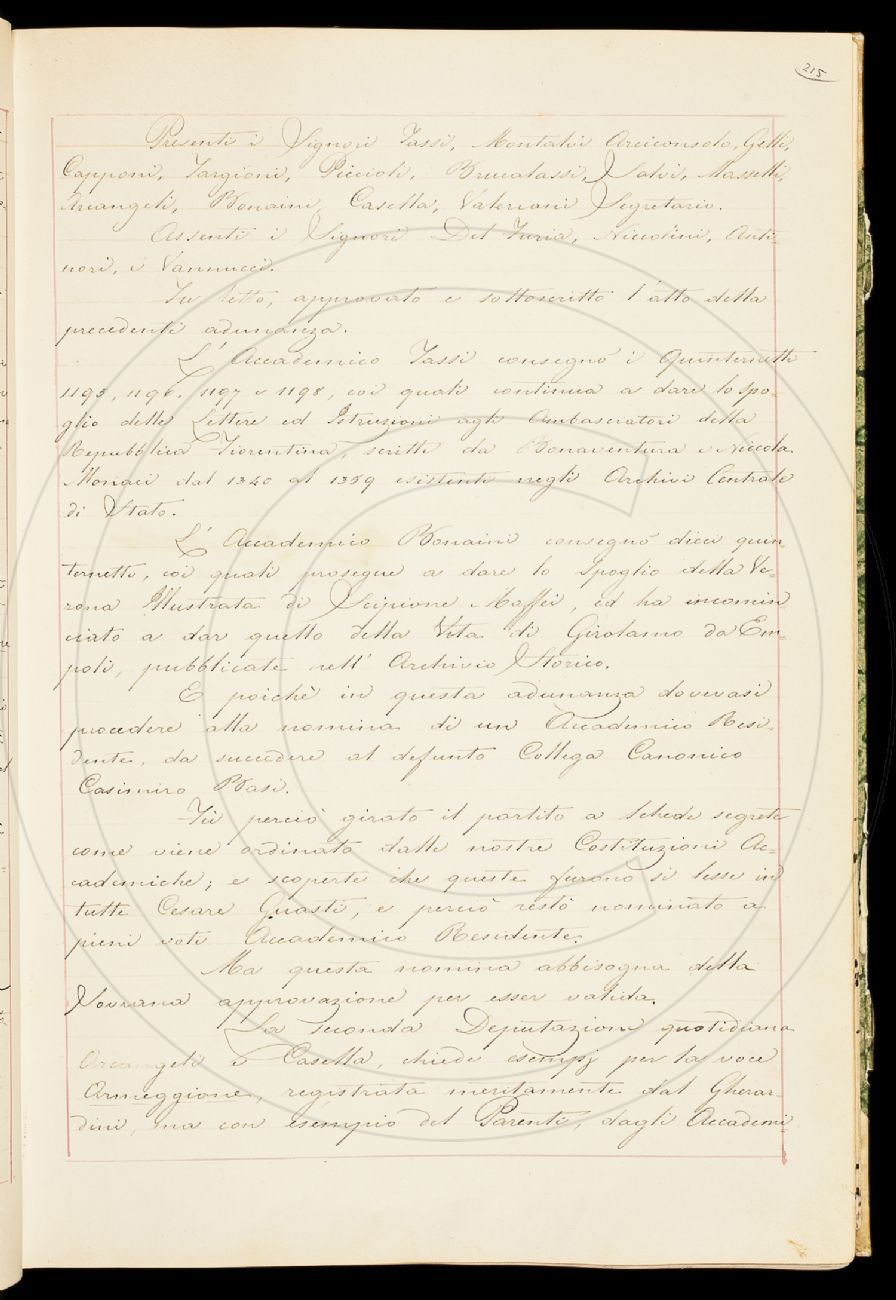 215
Presenti i Signori Tassi, Montalvi Arciconsolo, Gelli,
Capponi, Targioni, Piccioli, Brucalassi, Salvi, Masselli,
Arcangeli, Bonaini, Casella, Valeriani Segretario.
Assenti i Signori Del Furia, Niccolini, Anti-
nori, e Vannucci.
Fu letto, approvato e sottoscritto l'atto della
precedente adunanza.
L'Accademico Tassi consegnò i Quinternetti
1195, 1196, 1197 e 1198, coi quali continua a dare lo spo-
glio delle Lettere ed Istruzioni agli Ambasciatori della
Repubblica Fiorentina, scritte da Bonaventura e Niccola
Monaci dal 1340 al 1359 esistenti negli Archivi Centrale
di Stato.
L'Accademico Bonaini consegnò dieci quin-
ternetti, coi quali prosegue a dare lo spoglio della Ve-
rona Illustrata di Scipione Maffei, ed ha incomin
ciato a dar quello della Vita di Girolamo da Em-
poli, pubblicate nell'Archivio Storico.
E poichè in questa adunanza dovevasi
procedere alla nomina di un Accademico Resi-
dente, da succedere al defunto Collega Canonico
Casimiro Basi.
Fù perciò girato il partito a schede segrete
come viene ordinato dalle nostre Costituzioni Ac-
cademiche; e scoperte che queste furono si lesse in
tutte Cesare Guasti, e perciò restò nominato a
pieni voti Accademico Residente.
Ma questa nomina abbisogna della
Sovrana approvazione per esser valida.
La seconda Deputazione quotidiana
Arcangeli e Casella, chiede esempj per la voce
Armeggione, registrata meritamente dal Gherar-
dini, ma con esempio del Parenti, dagli Accademi